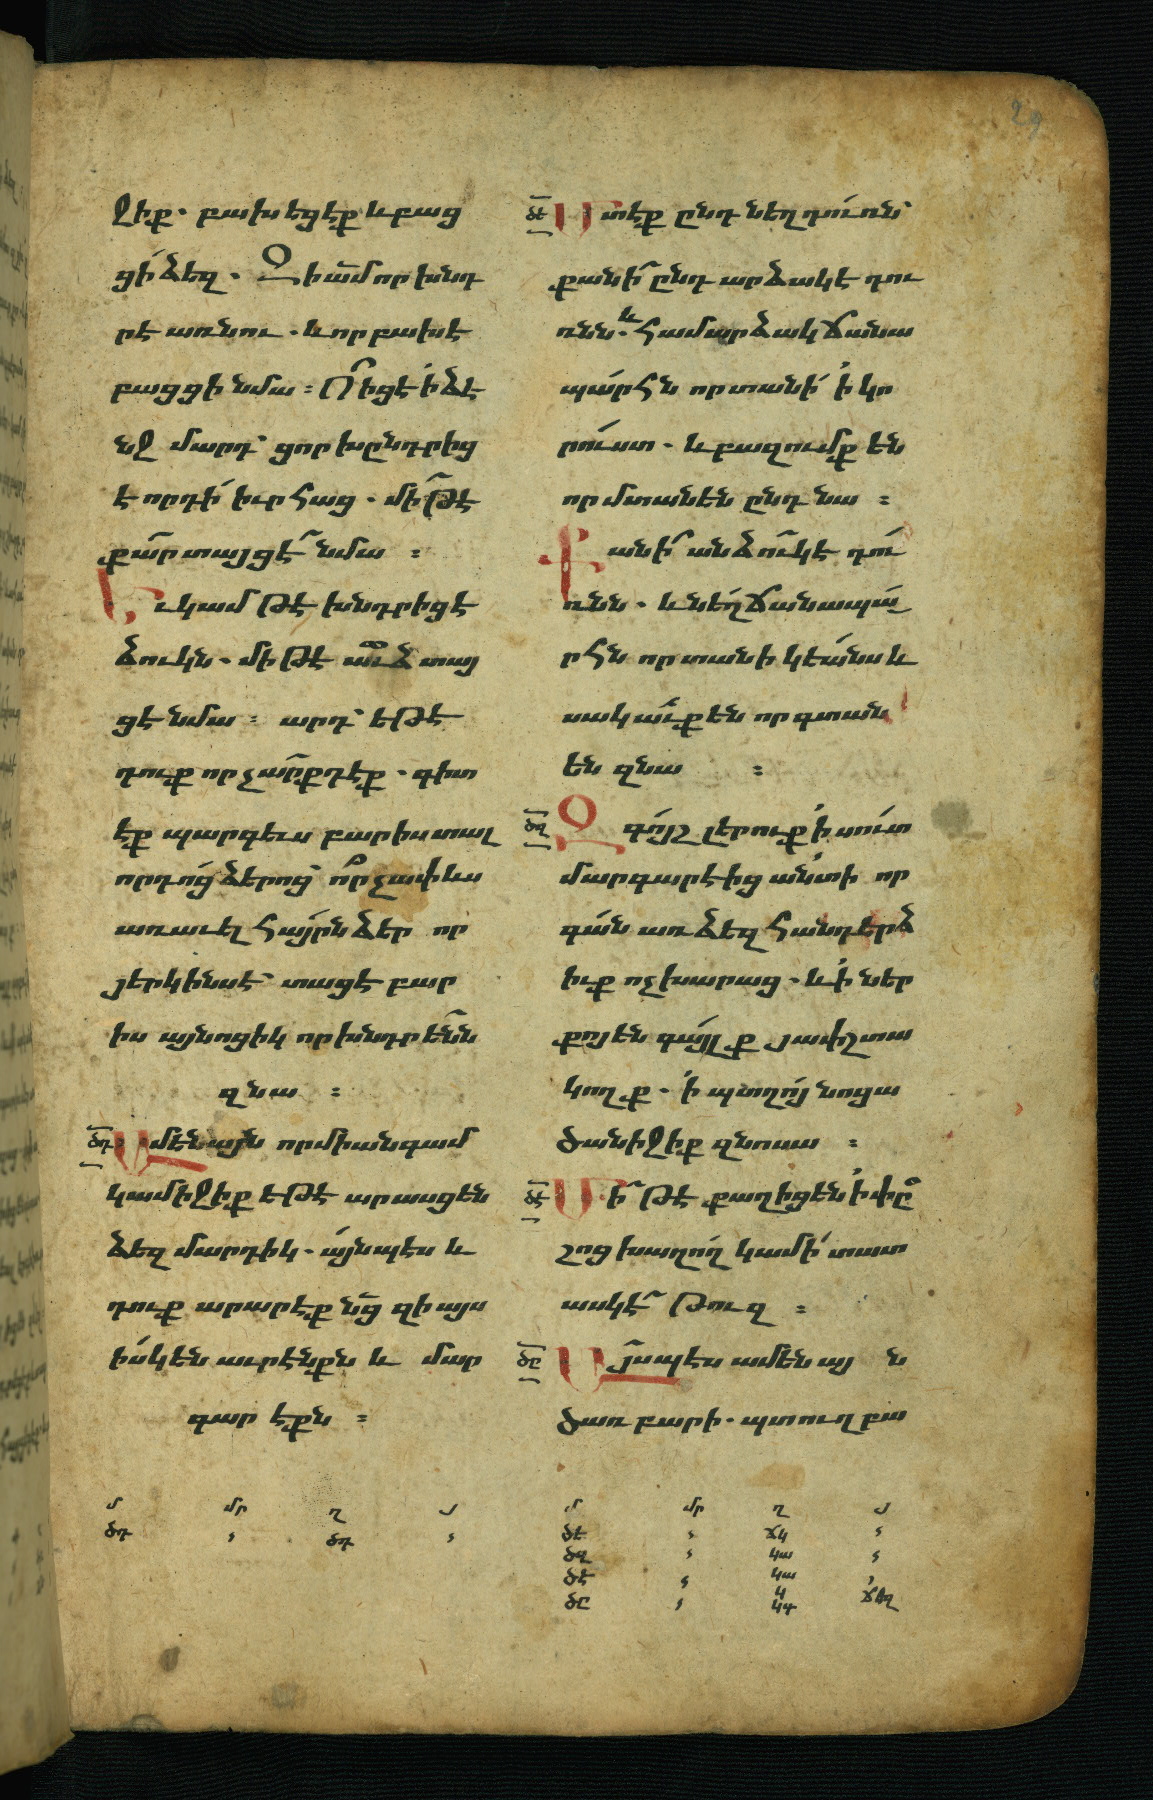 29
ջիք. բախեցէք և բաց
ցի՛ ձեզ. Զի ա՟մ որ խնդ
րէ առնու. և որ բախէ
բացցի նմա : Ո՞ իցէ ի՛ ձէ
նջ մարդ՝ ցոր խընդրից
է որդի՛ իւր հաց. մի՞ թէ
քա՟ր տայցէ՞ նմա :
Եւ կամ թէ խնդրիցէ
ձուկն. մի թէ աւձ տայ
ցէ նմա : արդ՝ եթէ
դուք որ չա՟րքդ էք. գիտ
էք պարգեւս բարիս տալ
որդո՛ց ձերոց՝ ո՞ր չափ ևս
առաւել հա՛յրն ձեր որ
յերկինս է՝ տացէ բար
իս այնոցիկ որ խնդրե՟նն
զնա :
ծդ Ամենայն որ միանգամ
կամիջիք եթէ արասցեն
ձեզ մարդիկ. ա՛յնպէս և
դուք արարէք ն՟ց զի այս
ի՛սկ են աւրէնքն և մար
գարէքն :
մ մր ղ յ
ծդ , ծդ ,
ծե Մտէք ընդ նեղ դո՛ւռն՝
քանի՞ ընդարձակ է դու
ռնն. և համարձակ ճանա
պա՛րհն որ տանի՛ ի՛ կո
րո՛ւստ. և բազումք են
որ մտանեն ընդ նա :
Քանի՞ անձո՟ւկ է դո՛ւ
ռնն. և նե՛ղ ճանապա՛
րհն որ տանի կեա՛նս և
սակա՛ւք են որ գտան
են զնա :
ծզ Զգո՛յշ լերուք ի՛ սո՛ւտ
մարգարէից ա՛նտի որ
գա՛ն առ ձեզ հանդերձ
իւք ոչխարաց. և ի՛ ներ
քոյ են գա՛յլք յափշտա
կողք. ի՛ պտղո՛յ նոցա
ծանիջիք զնոսա :
ծէ Մի՞ թէ քաղիցեն ի՛ փը՟
շոց խաղո՛ղ կամ ի՛ տատ
ասկէ՞ թուզ :
ծը Ա՛յսպէս ամենայ ն
ծառ բարի. պտուղ բա
մ մր ղ յ
ծե , ճկ ,
ծզ , կա ,
ծէ , կա ,
ծը , կգ ճժղ